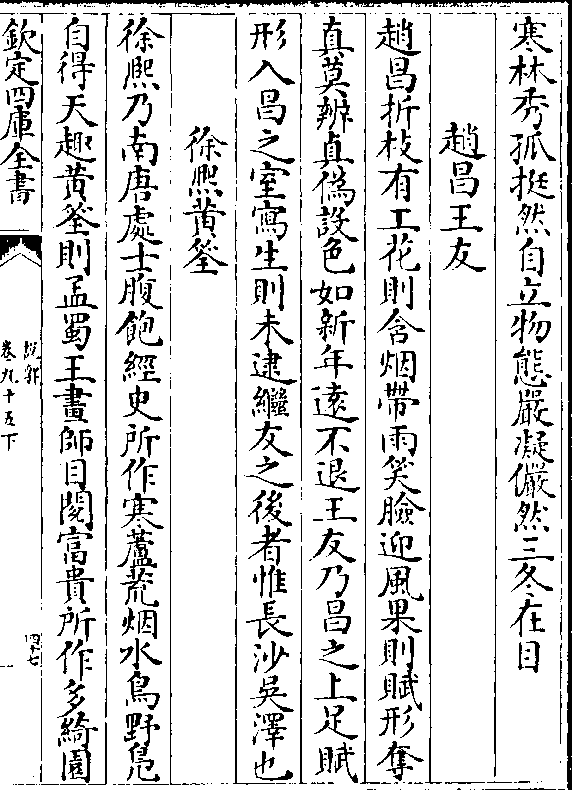 寒林秀孤挺然自立物態嚴凝儼然三冬在目
趙昌王友
趙昌折枝有工花則含烟帶雨笑臉迎風果則賦形奪
真莫辨真偽設色如新年遠不退王友乃昌之上足賦
形入昌之室寫生則未逮繼友之後者惟長沙吳澤也
徐熈黃筌
徐熈乃南唐處士腹飽經史所作寒蘆荒烟水鳥野鳬
自得天趣黃筌則孟蜀王畫師目閱富貴所作多綺園
欽定四庫全書
說郛
卷九十五下
四十七